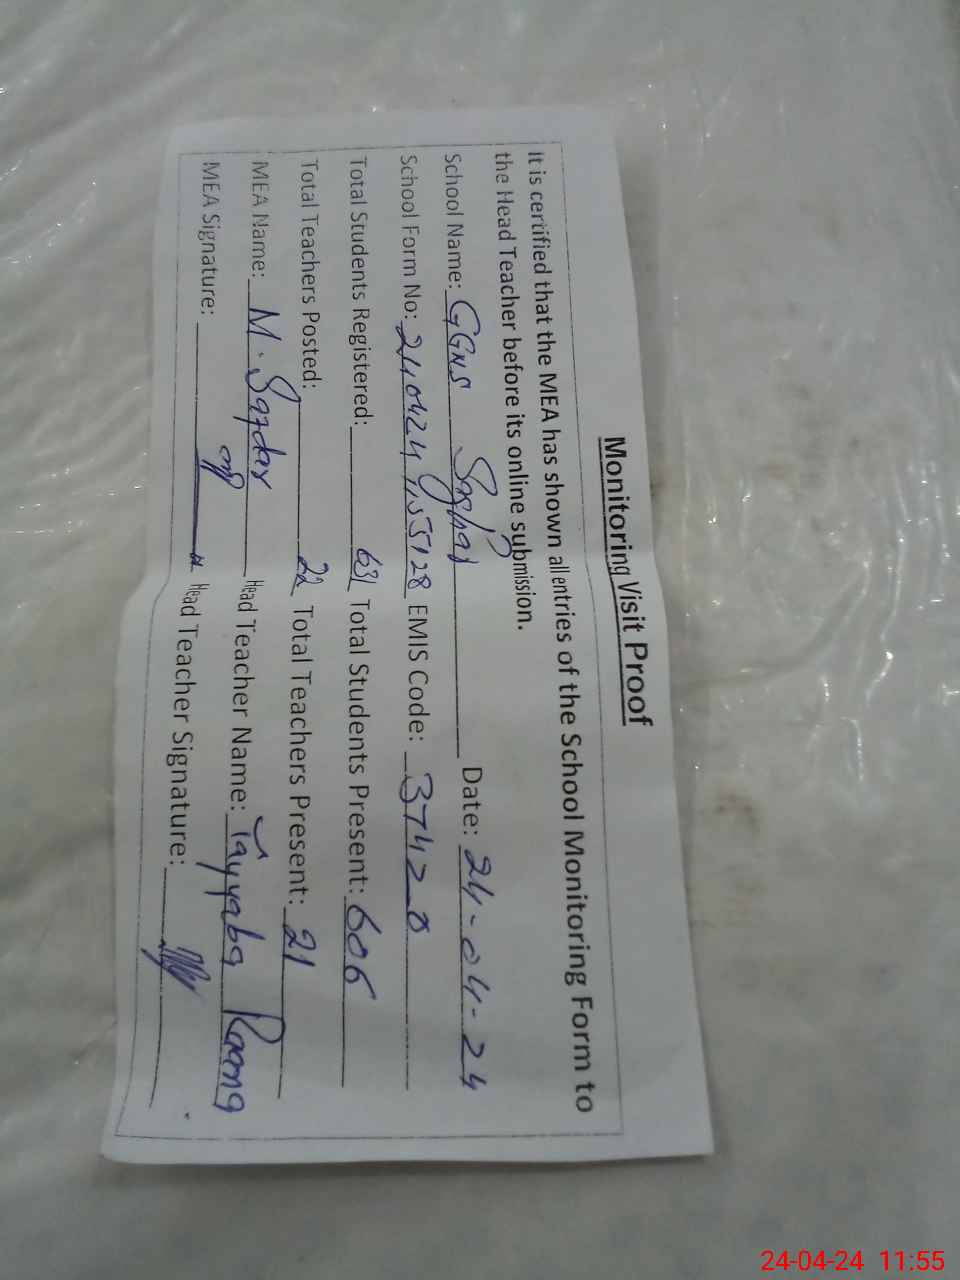 Monitoring Visit Proof
It is certified that the MEA has shown all entries of the School Monitoring Form to
the Head Teacher before its online submission.
School Name: GGNS Date: 24-04-24
School Form No: EMIS Code: 37420
Total Students Registered: 631 Total Students Present: 606
Total Teachers Posted: 22 Total Teachers Present: 21
MEA Name: M. Safdar Head Teacher Name: Tayyaba
MEA Signature: Head Teacher Signature:
24-04-24 11:55